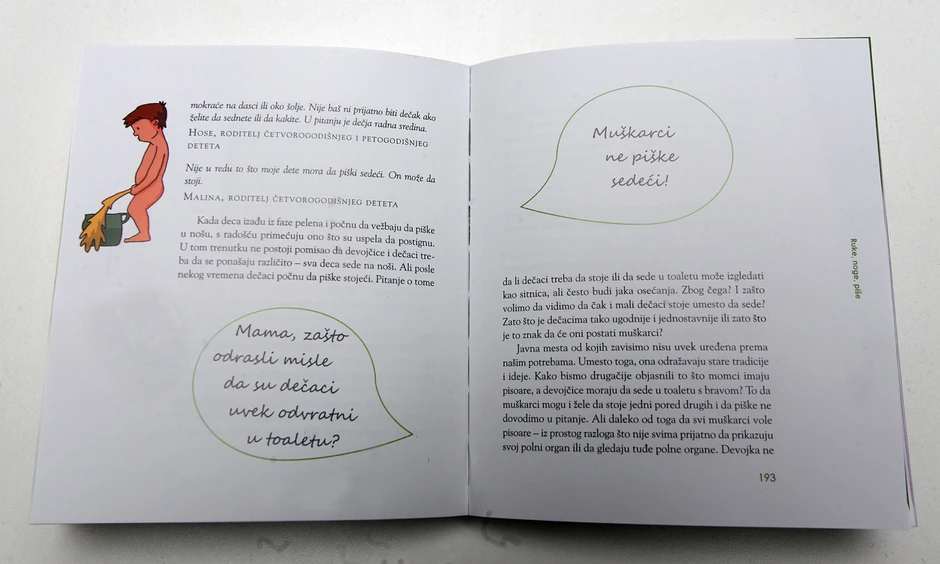 mokraće na dasci ili oko šolje. Nije baš ni prijatno biti dečak ako
želite da sednete ili da kakite. U pitanju je dečja radna sredina.
Hose, roditelj četvorogodišnjeg i petogodišnjeg
deteta
Nije u redu to što moje dete mora da piški sedeći. On može da
stoji.
Malina, roditelj četvorogodišnjeg deteta
Kada deca izađu iz faze pelena i počnu da vežbaju da piške
u nošu, s radošću primećuju ono što su uspela da postignu.
U tom trenutku ne postoji pomisao da devojčice i dečaci tre-
ba da se ponašaju različito – sva deca sede na noši. Ali posle
nekog vremena dečaci počnu da piške stojeći. Pitanje o tome
Mama, zašto
odrasli misle
da su dečaci
uvek odvratni
u toaletu?
Muškarci
ne piške
sedeći!
da li dečaci treba da stoje ili da sede u toaletu može izgledati
kao sitnica, ali često budi jaka osećanja. Zbog čega? I zašto
volimo da vidimo da čak i mali dečaci stoje umesto da sede?
Zato što je dečacima tako ugodnije i jednostavnije ili zato što
je to znak da će oni postati muškarci?
Javna mesta od kojih zavisimo nisu uvek uređena prema
našim potrebama. Umesto toga, ona odražavaju stare tradicije
i ideje. Kako bismo drugačije objasnili to što momci imaju
pisoare, a devojčice moraju da sede u toaletu s bravom? To da
muškarci mogu i žele da stoje jedni pored drugih i da piške ne
dovodimo u pitanje. Ali daleko od toga da svi muškarci vole
pisoare – iz prostog razloga što nije svima prijatno da prikazuju
svoj polni organ ili da gledaju tuđe polne organe. Devojka ne
193
Ruke, noge, piše